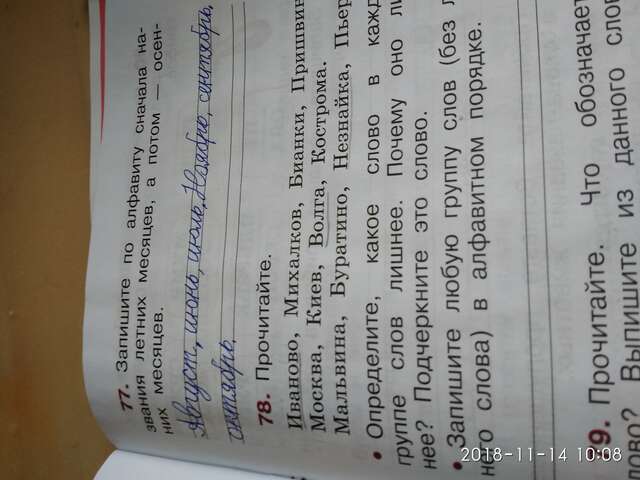 77. Запишите по алфавиту сначала на-
звания летних месяцев, а потом — осен-
них месяцев.
Август, июнь, июль. Ноябрь, сентябрь,
сентябрь.
78. Прочитайте.
Иваново, Михалков, Бианки, Пришвин
Москва, Киев, Волга, Кострома.
Мальвина, Буратино, Незнайка, Пьер
• Определите, какое слово в кажд
группе слов лишнее. Почему оно ли
нее? Подчеркните это слово.
• Запишите любую группу слов (без л
него слова) в алфавитном порядке.
9. Прочитайте. Что обозначает
лово? Выпишите из данного слов
2018-11-14 10:08